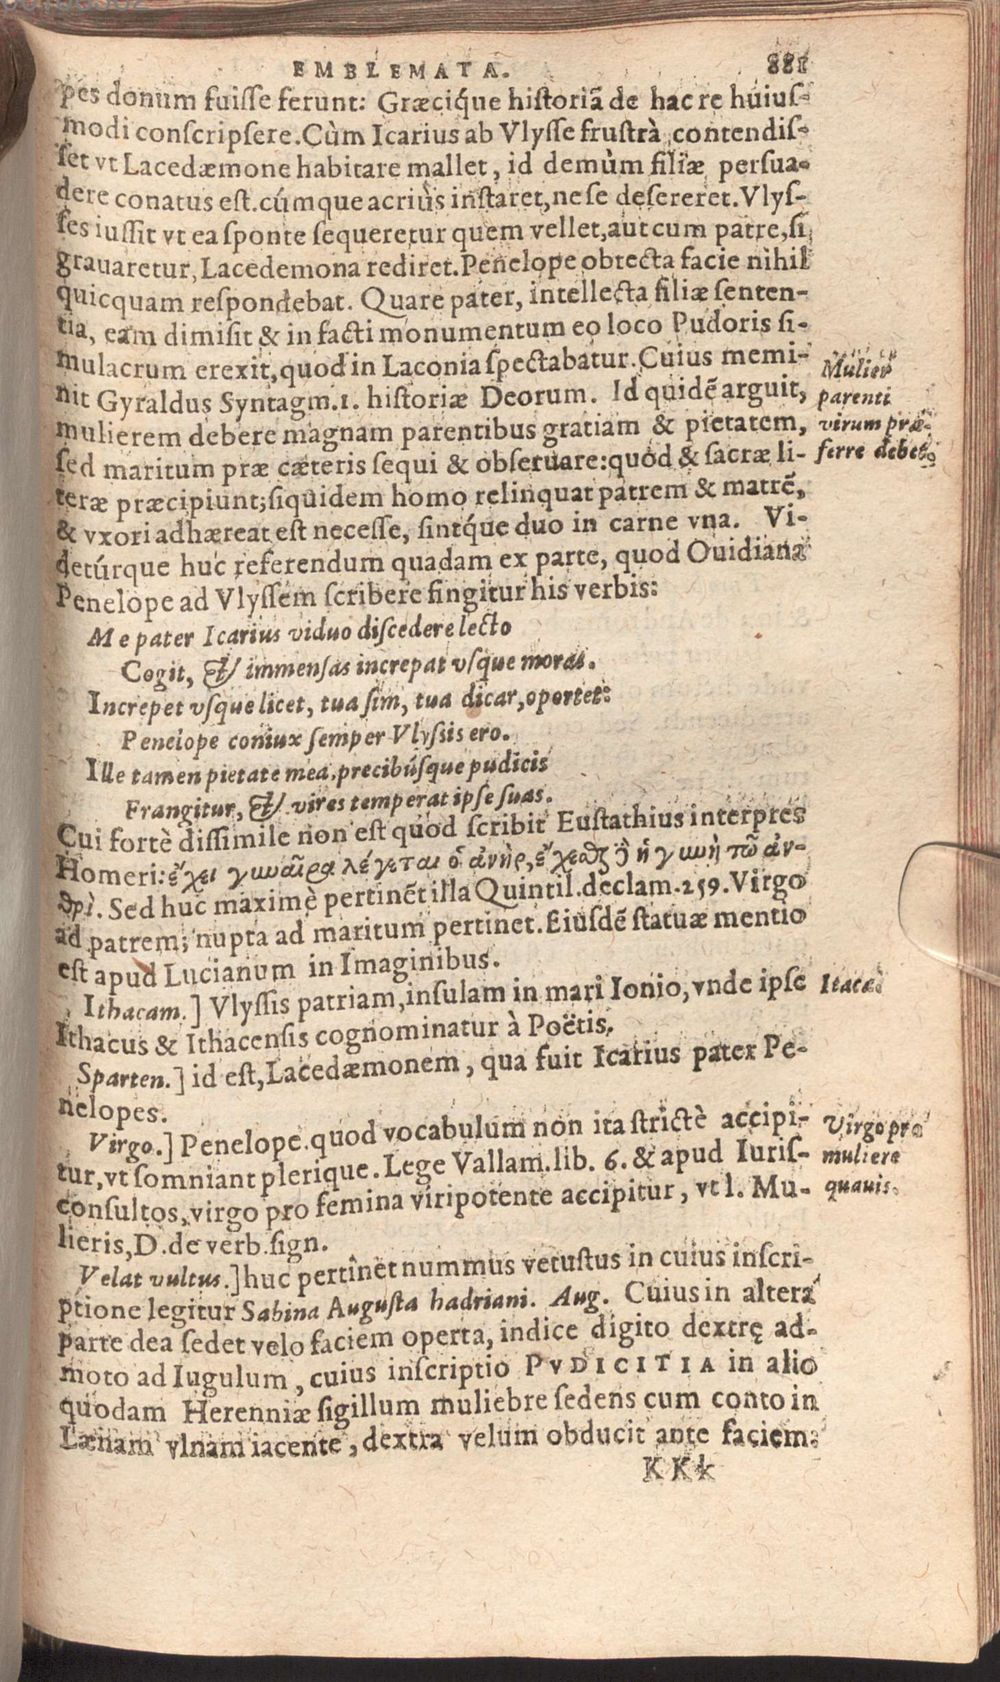 EMBLEMATA. 881
pes donum fuisse ferunt: Græciq́ue historiã de hac re huius-
modi conscripsere. Cùm Icarius ab Vlysse frustrà contendis-
set vt Lacedæmone habitare mallet, id demùm filiæ persua-
dere conatus est. cúmque acriùs instaret, ne se desereret. Vlys-
ses iussit vt ea sponte sequeretur quem vellet, aut cum patre, si
grauaretur, Lacedemona rediret. Penelope obtecta facie nihil
quicquam respondebat. Quare pater, intellecta filiæ senten-
tia, eam dimisit & in facti monumentum eo loco Pudoris si-
mulacrum erexit, quod in Laconia spectabatur. Cuius memi-
nit Gyraldus Syntagm. 1. historiæ Deorum. Id quidẽ arguit,
mulierem debere magnam parentibus gratiam & pietatem,
sed maritum præ cæteris sequi & obseruare: quod & sacræ li-
teræ præcipiunt; siquidem homo relinquat patrem & matrẽ,
& vxori adhæreat est necesse, sintq́ue duo in carne vna. Vi-
detúrque huc referendum quadam ex parte, quod Ouidiana
Penelope ad Vlyssem scribere fingitur his verbis:
Mulier
parenti
virum præ-
ferre debet.
Me pater Icarius viduo discedere lecto
Cogit, & immensas increpat vsque moras.
Increpet vsque licet, tua sim, tua dicar, oportet:
Penelope coniux semper Vlyssis ero.
Ille tamen pietate mea, precibúsque pudicis
Frangitur, & vires temperat ipse suas.
Cui fortè dissimile non est quod scribit Eustathius interpres
Homeri: ἔχει γυναῖκα λέγεται ὁ ἀνὴρ, ἔχεσθαι δὲ ἡ γυνὴ τῷ ἀν-
δρὶ. Sed huc maximè pertinẽt illa Quintil. declam. 259. Virgo
ad patrem; nupta ad maritum pertinet. Eiusdẽ statuæ mentio
est apud Lucianum in Imaginibus.
Ithacam.] Vlyssis patriam, insulam in mari Ionio, vnde ipse
Itaca
Ithacus & Ithacensis cognominatur à Poëtis.
Sparten.] id est, Lacedæmonem, qua fuit Icarius pater Pe-
nelopes.
Virgo.] Penelope. quod vocabulum non ita strictè accipi-
tur, vt somniant plerique. Lege Vallam. lib. 6. & apud Iuris-
consultos, virgo pro femina viripotente accipitur, vt l. Mu-
lieris, D. de verb. sign.
Virgo pro
muliere
quauis.
Velat vultus.] huc pertinet nummus vetustus in cuius inscri-
ptione legitur Sabina Augusta hadriani. Aug. Cuius in altera
parte dea sedet velo faciem operta, indice digito dextrę ad-
moto ad Iugulum, cuius inscriptio PVDICITIA in alio
quodam Herenniæ sigillum muliebre sedens cum conto in
Lænam vlnam iacente, dextra velum obducit ante faciem:
KKk